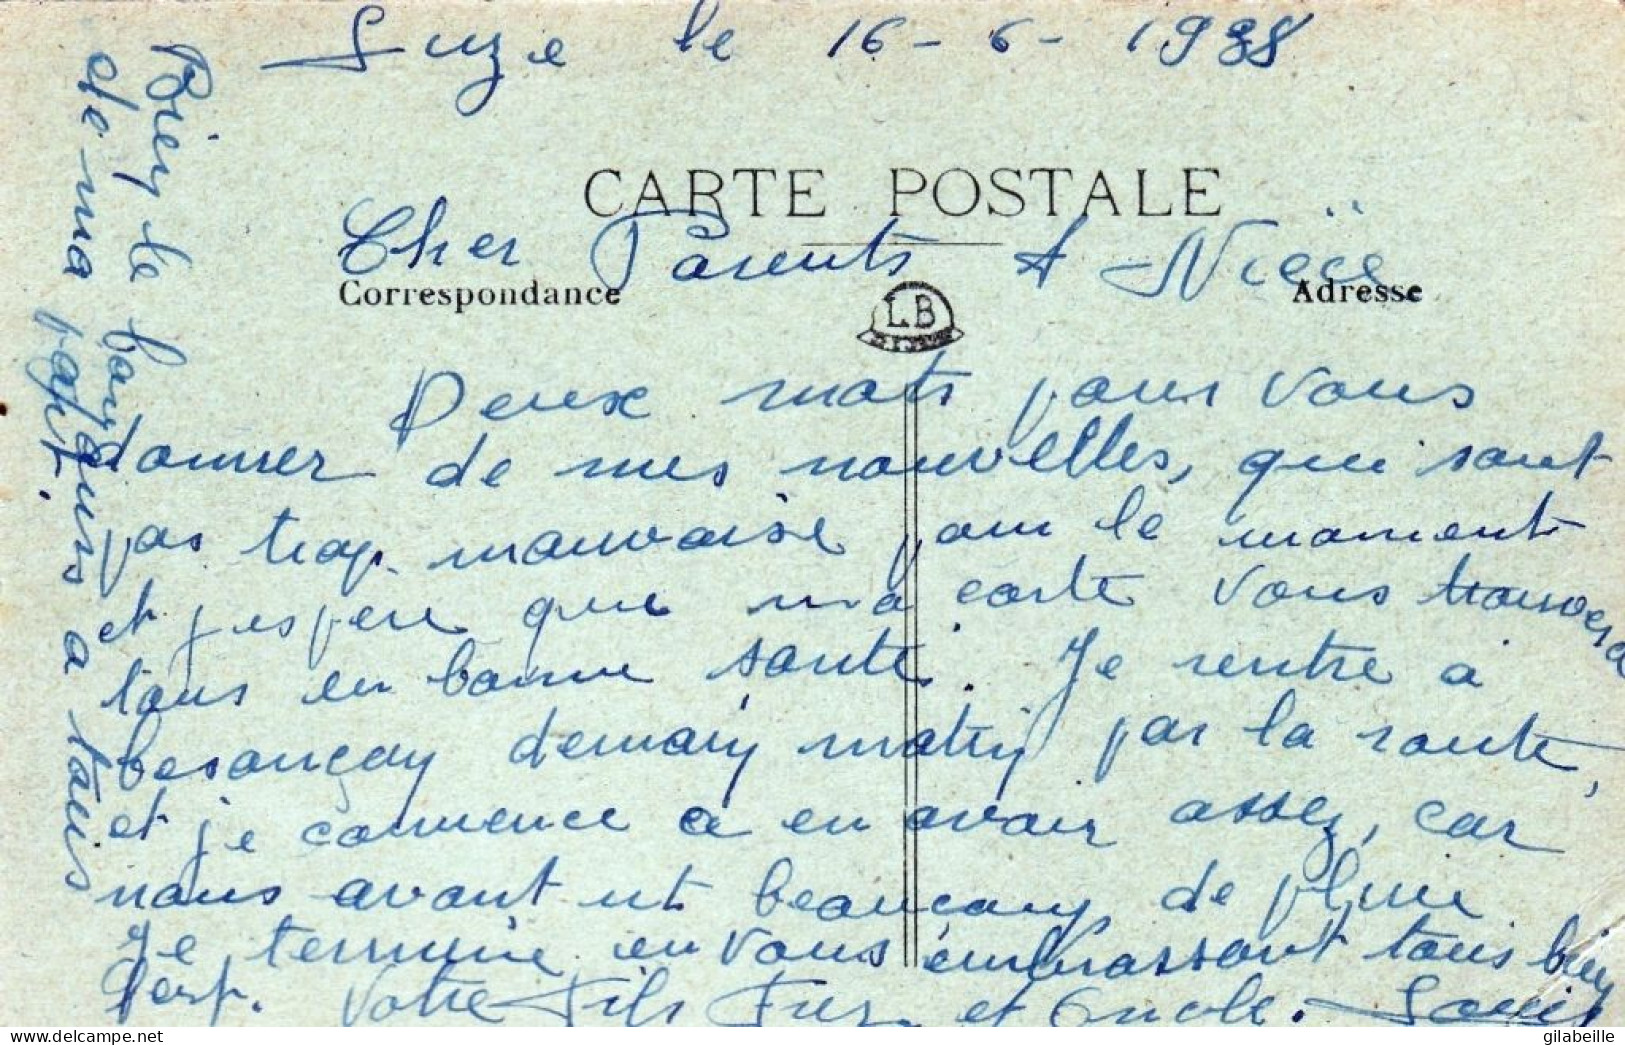 Suze le 16-6-1938
CARTE POSTALE
Cher Parents & Nièce
Correspondance
Adresse
LB
Deux mots pour vous
donner de mes nouvelles, qui sont
pas trop mauvaise pour le moment
et j'espere que ma carte vous trouvera
tous en bonne santé. Je rentre à
besançon demain matin par la route,
et je commence a en avoir assez, car
nous avont ut beaucoup de pluie
Je termine en vous embrassant tous bien
fort. Votre Fils Frer et Oncle. Louis
Bien le bonjours a tous
de ma part.
delcampe.net
gilabeille